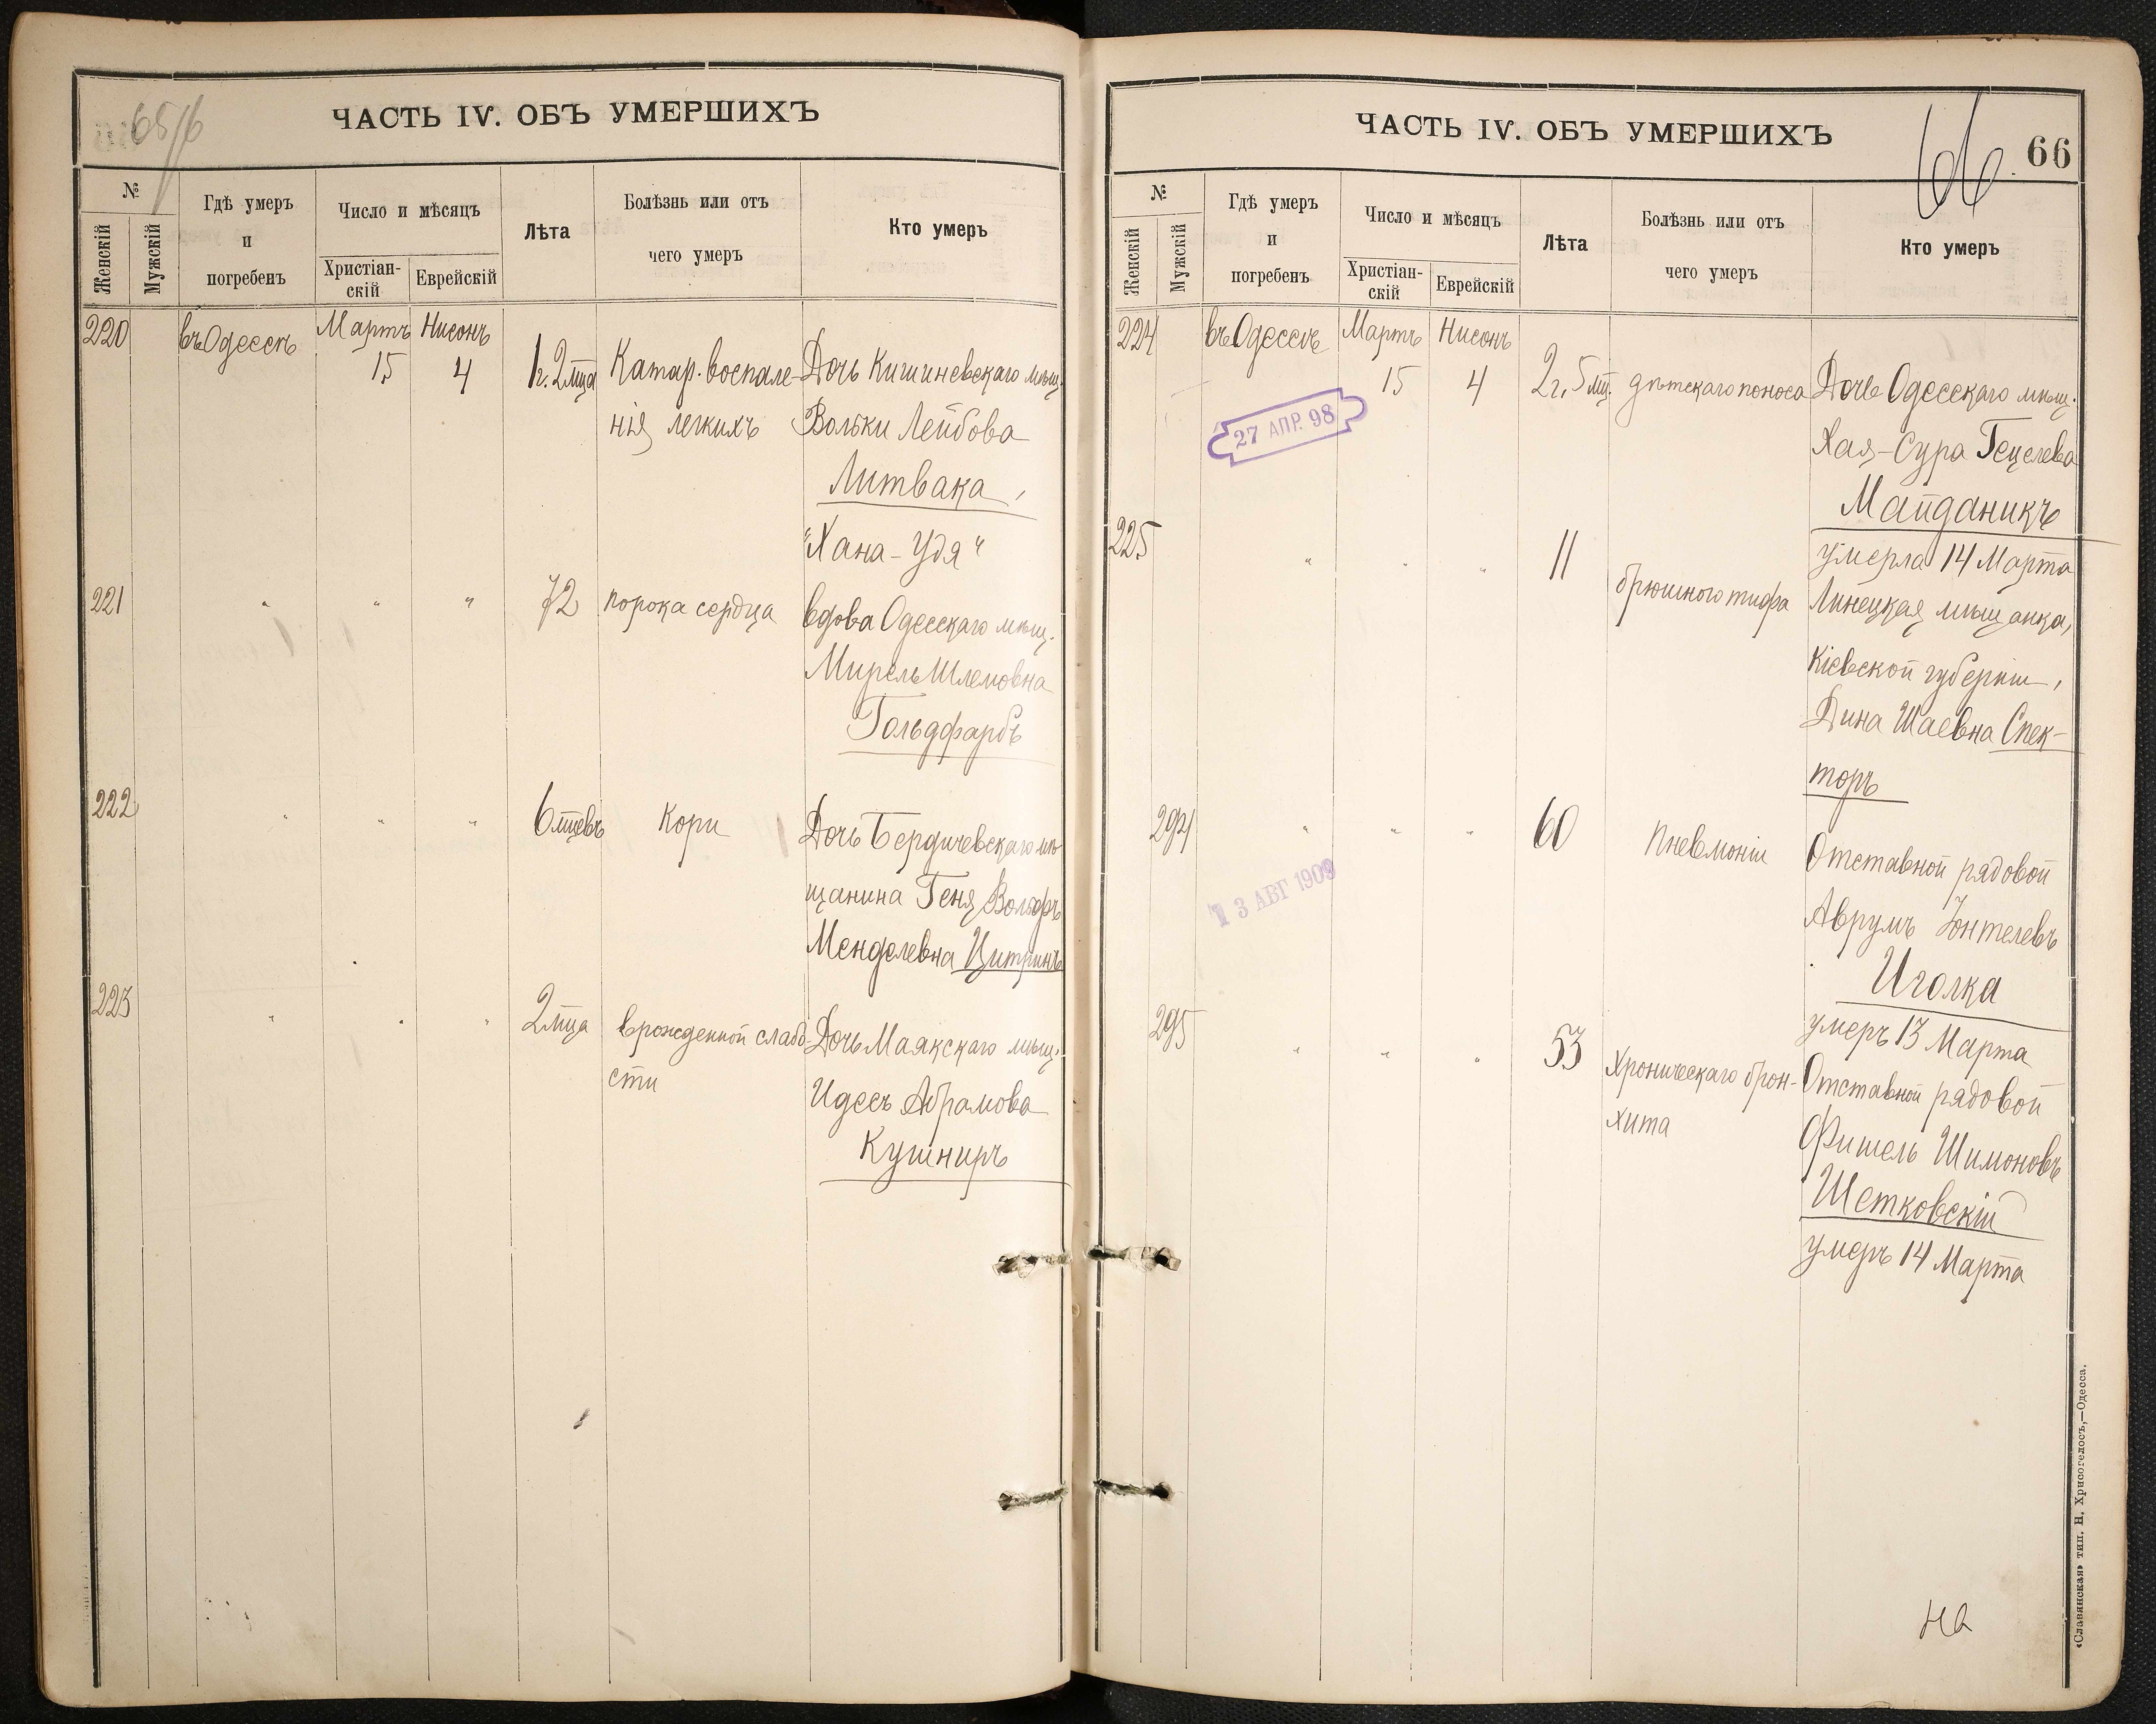 65/б
ЧАСТЬ IV. ОБЪ УМЕРШИХЪ
№
Женскій
Мужскій
Гдѣ умеръ
и
погребенъ
Число и мѣсяцъ
Христіан-
скій
Еврейскій
Лѣта
Болѣзнь или отъ
чего умеръ
Кто умеръ
220 въ Одессѣ Мартъ Нисонъ
15 4 1 г. 2 мца Катар. воспале- Дочь Кишиневскаго мѣщ.
нія легкихъ Вольки Лейбова
Литвака,
"Хана-Удя"
221 " " " 72 порока сердца вдова Одесскаго мѣщ.
Мирель Шлемовна
Гольдфарбъ
222 " " " 6 мцевъ Кори Дочь Бердичевскаго мѣ
щанина Геня Вольфъ
Менделевна Цитринъ
223 " " " 2 мца врожденной слабо- Дочь Маякскаго мѣщ.
сти Идесъ Абрамова
Кушниръ
ЧАСТЬ IV. ОБЪ УМЕРШИХЪ
66
66
№
Женскій
Мужскій
Гдѣ умеръ
и
погребенъ
Число и мѣсяцъ
Христіан-
скій
Еврейскій
Лѣта
Болѣзнь или отъ
чего умеръ
Кто умеръ
224 въ Одессѣ Мартъ Нисонъ
15 4 2 г. 5 мц. дѣтскаго поноса Дочь Одесскаго мѣщ.
27 АПР. 98
Хая-Сура Гецелева
Майданикъ
умерла 14 Марта
225 " " " 11 брюшного тифа Линецкая мѣщанка,
Кіевской губерніи,
Дина Шаевна Спек-
торъ
294 " " " 60 Пневмоніи Отставной рядовой
13 АВГ 1909
Аврумъ Іонтелевъ
Иголка
умеръ 13 Марта
295 " " " 53 Хроническаго брон- Отставной рядовой
хита Фишель Шимоновъ
Шетковскій
умеръ 14 Марта
на
«Славянская» тип. Н. Хрисогелосъ,—Одесса.